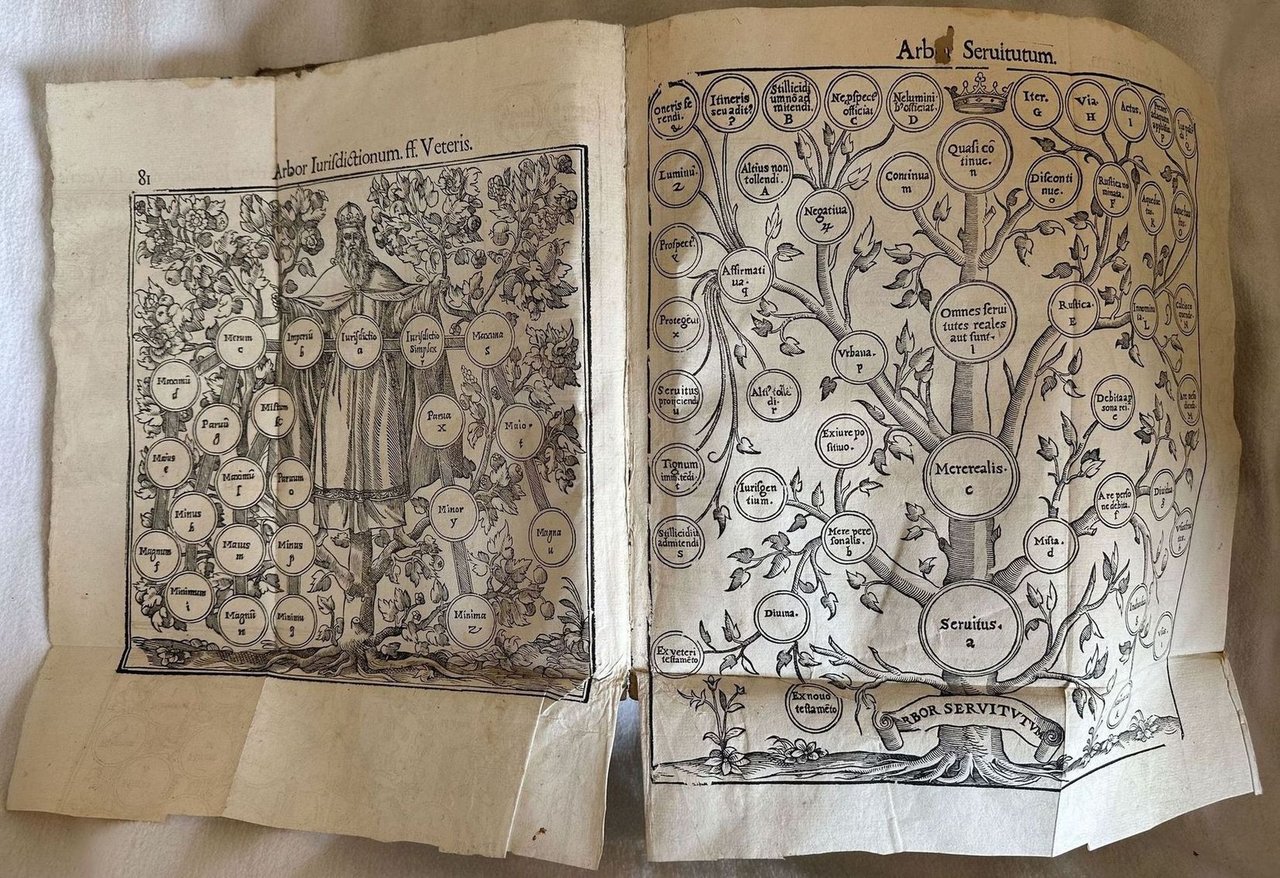 81
Arbor Iurisdictionum. ff. Veteris.
Merum
c
Imperiũ
b
Iurisdictio
a
Iurisdictio
Simplex
r
Maxima
s
Maximũ
d
Paruũ
g
Mistum
k
Parua
x
Maior
t
Maius
e
Maximũ
l
Paruum
o
Minus
h
Minor
y
Magnum
f
Maius
m
Minus
p
Magna
u
Minimum
i
Magnũ
n
Minimũ
q
Minima
z
Arbor Seruitutum.
Oneris fe
rendi.
&
Itineris
seu adit9
?
Stillicidi
um nõ ad
mitendi.
B
Ne pspect9
officiat.
C
Ne lumini
b9 officiat.
D
Iter.
G
Via.
H
Actus.
I
Luminũ.
Z
Altius non
tollendi.
A
Negatiua
Continua
m
Quasi cõ
tinue.
n
Disconti
nue.
o
Rustica no
minata.
F
Prospect9.
y
Affirmati
ua.
q
Protegẽdi
x
Omnes serui
tutes reales
aut sunt.
l
Rustica.
E
Innomina
ta.
L
Vrbana.
p
Seruitus
proijciendi
u
Alti9 tollẽ
di.
r
Debita a p
sona rei.
e
Exiure po
sitiuo.
Tignum
immitẽdi.
t
Mererealis.
c
Iurisgen
tium.
A re perso
ne debita.
f
Diuina.
Stillicidiũ
admitendi
s
Mere perso
sonalis.
b
Mista.
d
Diuina.
Seruitus.
a
Ex veteri
testamẽto
Ex nouo
testamẽto
ARBOR SERVITVTVM